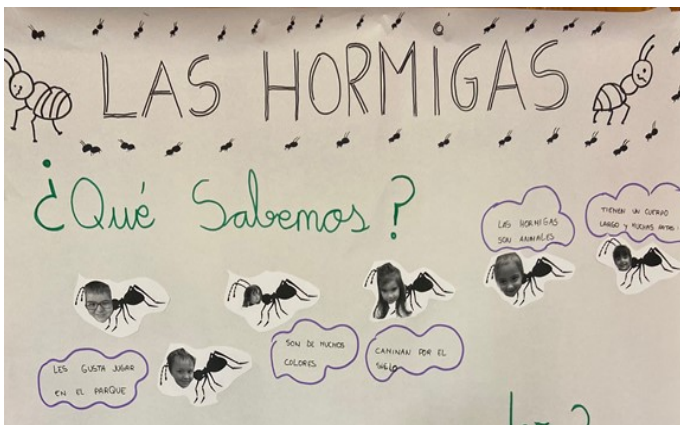 LAS HORMIGAS
¿Qué Sabemos?
LAS HORMIGAS
SON ANIMALES
TIENEN UN CUERPO
LARGO Y MUCHAS PATAS
LES GUSTA JUGAR
EN EL PARQUE
SON DE MUCHOS
COLORES
CAMINAN POR EL
SUELO